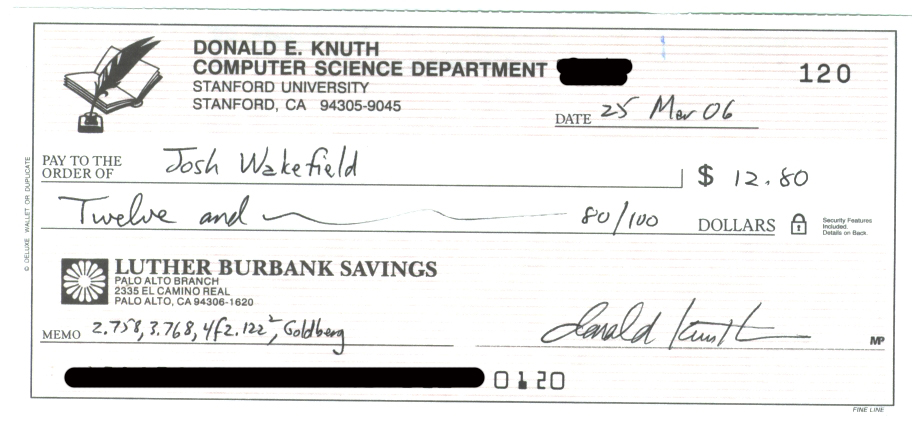 DONALD E. KNUTH
COMPUTER SCIENCE DEPARTMENT
STANFORD UNIVERSITY
STANFORD, CA 94305-9045
120
DATE 25 Mar 06
PAY TO THE ORDER OF Josh Wakefield $ 12.80
Twelve and 80/100 DOLLARS
Security Features
Included.
Details on Back.
© DELUXE WALLET OR DUPLICATE
LUTHER BURBANK SAVINGS
PALO ALTO BRANCH
2335 EL CAMINO REAL
PALO ALTO, CA 94306-1620
MEMO 2.758, 3.768, 4f2.122², Goldberg
Donald Knuth
MP
0120
FINE LINE